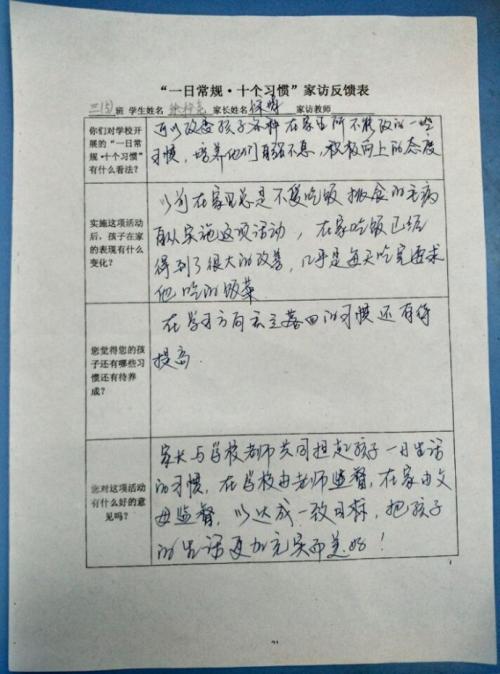 “一日常规·十个习惯”家访反馈表
二(5)班 学生姓名 家长姓名 家访教师
你们对学校开
展的“一日常
规·十个习惯”
有什么看法?
可以改变孩子各种在家里所不能改的一些
习惯,培养他们自强不息,积极向上的态度
实施这项活动
后,孩子在家
的表现有什么
变化?
以前在家里总是不爱吃饭 挑食的毛病
自从实施这项活动,在家吃饭已经
得到了很大的改善,几乎是每天吃完要求
他吃的饭菜
您觉得您的孩
子还有哪些习
惯还有待养
成?
在学习方面 的习惯还有待
提高.
您对这项活动
有什么好的意
见吗?
家长与学校老师共同担起孩子一日生活
的习惯,在学校由老师监督,在家由父
母监督,以达成一致目标,把孩子
的生活更加充实而美好!